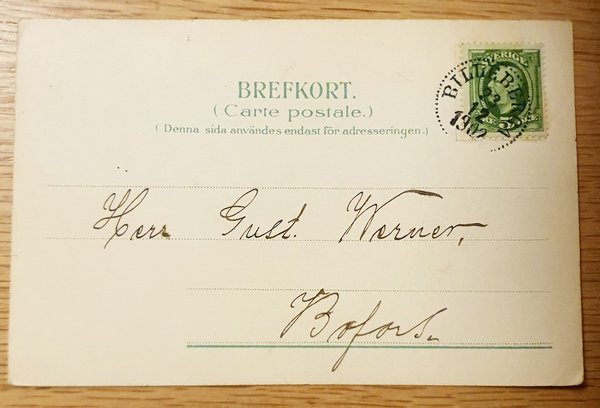 BREFKORT.
(Carte postale.)
(Denna sida användes endast för adresseringen.)
SVERIGE
23
12
1902
Herr Gust. Werner,
Bofors.